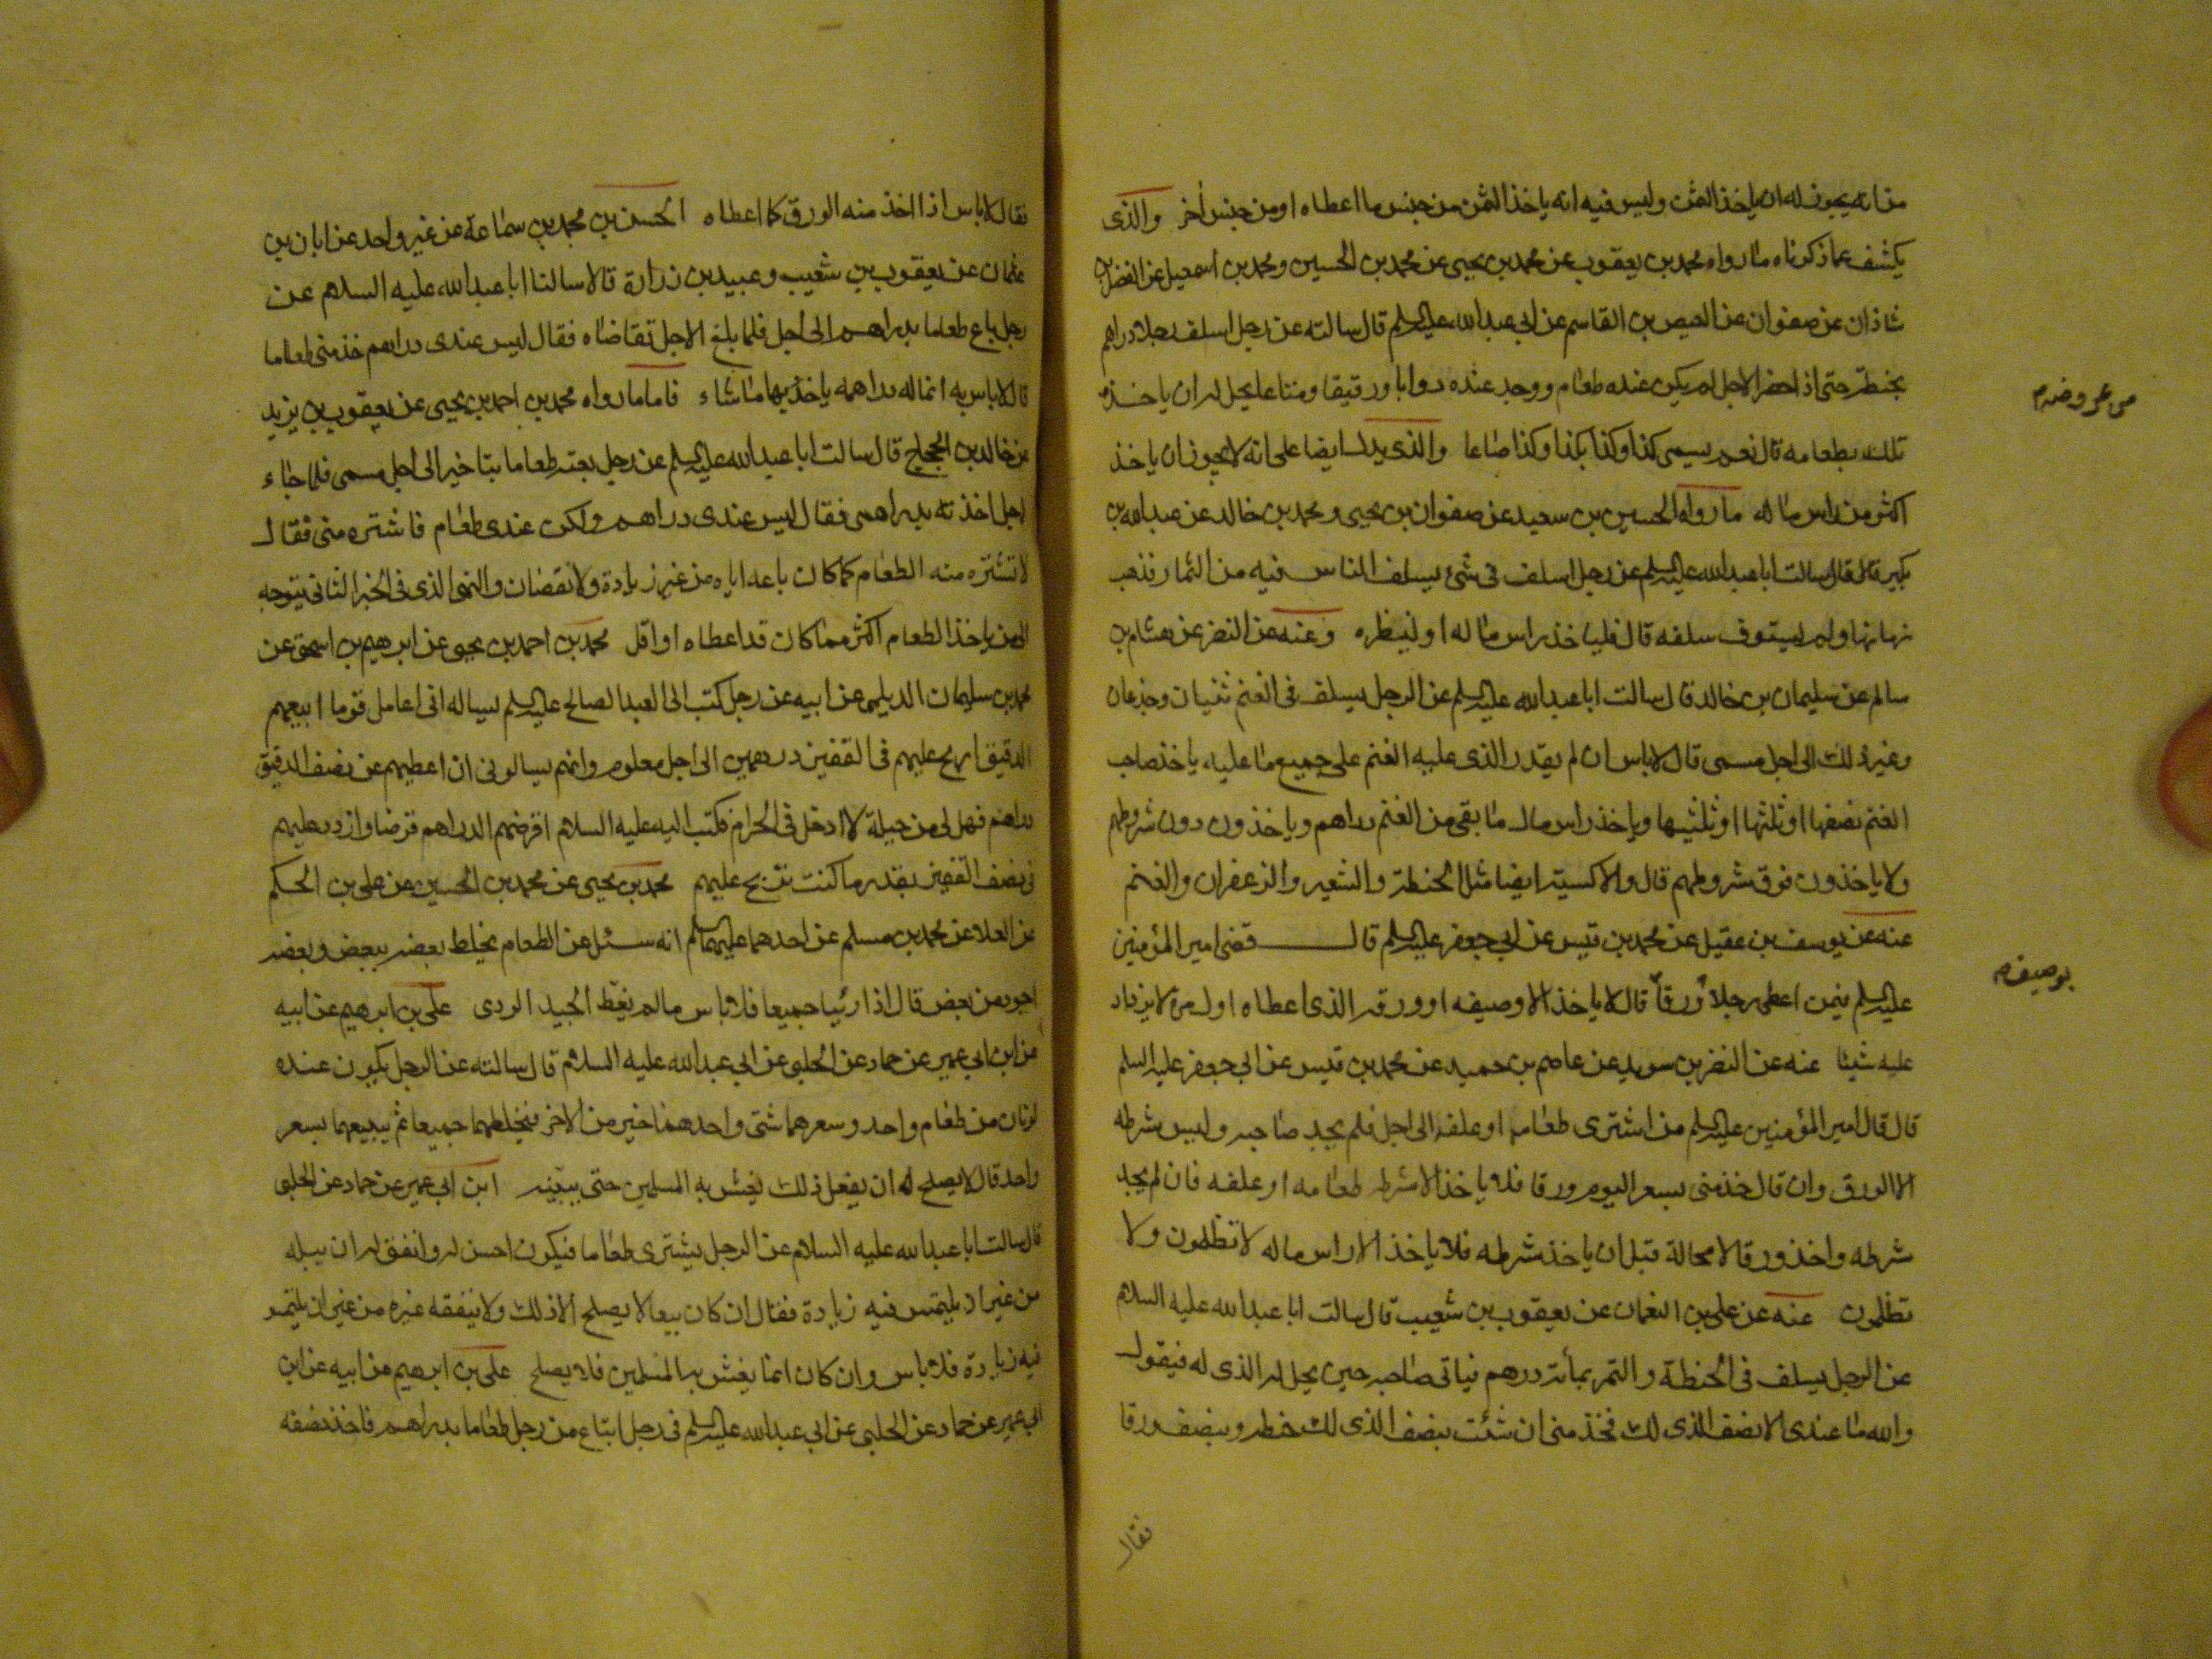 من انه يجوز له ان ياخذ الثمن وليس فيه انه ياخذ الثمن من جنس ما اعطاه او من جنس اخر والذى
يكشف عما ذكرناه ما رواه محمد بن يعقوب عن محمد بن يحيى عن محمد بن الحسين ومحمد بن اسمعيل عن الفضل بن
شاذان عن صفوان عن العيص بن القاسم عن ابى عبدالله عليه السلم قال سالته عن رجل اسلف رجلا دراهم
بحنطة حتى اذا حضر الاجل لم يكن عنده طعام ووجد عنده دوابا ورقيقا ومتاعا يحل له ان ياخذ
من عروضه م
تلك بطعامه قال نعم يسمى كذا وكذا بكذا وكذا صاعا والذى يدل ايضا على انه لا يجوز ان ياخذ
اكثر من راس ماله ما رواه الحسين بن سعيد عن صفوان بن يحيى ومحمد بن خالد عن عبدالله بن
بكير قال قال سالت ابا عبدالله عليه السلم عن رجل اسلف فى شئ يسلف الناس فيه من الثمار فذهب
زمانها ولم يستوف سلفه قال فلياخذ راس ماله او لينظره وعنه عن النضر عن هشام بن
سالم عن سليمان بن خالد قال سالت ابا عبدالله عليه السلم عن الرجل يسلف فى الغنم ثنيان وجذعان
وغير ذلك الى اجل مسمى قال لا باس ان لم يقدر الذى عليه الغنم على جميع ما عليه ياخذ صاحب
الغنم نصفها او ثلثها او ثلثيها وياخذ راس مال ما بقى من الغنم دراهم وياخذون دون شروطهم
ولا ياخذون فوق شروطهم قال والاكسية ايضا مثل الحنطة والشعير والزعفران والغنم
عنه عن يوسف بن عقيل عن محمد بن قيس عن ابى جعفر عليه السلم قال قضى امير المؤمنين
بوصيف م
عليه السلم فيمن اعطى رجلا ورقا قال لا ياخذ الا وصيفه او ورقه الذى اعطاه اول مرة لا يزداد
عليه شيئا عنه عن النضر بن سويد عن عاصم بن حميد عن محمد بن قيس عن ابى جعفر عليه السلم
قال قال امير المؤمنين عليه السلم من اشترى طعاما او علفا الى اجل فلم يجد صاحبه وليس شرطه
الا الورق وان قال خذ منى بسعر اليوم ورقا فلا ياخذ الا شرطه طعامه او علفه فان لم يجد
شرطه واخذ ورقا لا محالة قبل ان ياخذ شرطه فلا ياخذ الا راس ماله لا تظلمون ولا
تظلمون عنه عن على بن النعمان عن يعقوب بن شعيب قال سالت ابا عبدالله عليه السلام
عن الرجل يسلف فى الحنطة والتمر بمائة درهم فياتى صاحبه حين يحل له الذى له فيقول
والله ما عندى الا نصف الذى لك فخذ منى ان شئت بنصف الذى لك حنطة وبنصف ورقا
فقال
فقال لا باس اذا اخذ منه الورق كما اعطاه الحسن بن محمد بن سماعة عن غير واحد عن ابان بن
عثمان عن يعقوب بن شعيب وعبيد بن زرارة قالا سالنا ابا عبدالله عليه السلام عن
رجل باع طعاما بدراهم الى اجل فلما بلغ الاجل تقاضاه فقال ليس عندى دراهم خذ منى طعاما
قال لا باس به انما له دراهمه ياخذ بها ما شاء فاما ما رواه محمد بن احمد بن يحيى عن يعقوب بن يزيد
عن خالد بن الحجاج قال سالت ابا عبدالله عليه السلم عن رجل بعته طعاما بتاخير الى اجل مسمى فلما جاء
الاجل اخذته بدراهمى فقال ليس عندى دراهم ولكن عندى طعام فاشتره منى فقال
لا تشتره منه الطعام كما كان باعه اياه من غير زيادة ولا نقصان والنهى الذى فى الخبر الثانى يتوجه
الى من ياخذ الطعام اكثر مما كان قد اعطاه او اقل محمد بن احمد بن يحيى عن ابرهيم بن اسحق عن
محمد بن سليمان الديلمى عن ابيه عن رجل كتب الى العبد الصالح عليه السلم يساله انى اعامل قوما ابيعهم
الدقيق اربح عليهم فى القفيز درهمين الى اجل معلوم وانهم يسالونى ان اعطيهم عن نصف الدقيق
دراهم فهل لى من حيلة لا ادخل فى الحرام فكتب اليه عليه السلام اقرضهم الدراهم قرضا وازدد عليهم
فى نصف القفيز بقدر ما كنت تربح عليهم محمد بن يحيى عن محمد بن الحسين عن على بن الحكم
عن العلا عن محمد بن مسلم عن احدهما عليهما السلم انه سئل عن الطعام يخلط بعضه ببعض وبعضه
اجود من بعض قال اذا رئيا جميعا فلا باس ما لم يغط الجيد الردى على بن ابرهيم عن ابيه
عن ابن ابى عمير عن حماد عن الحلبى عن ابى عبدالله عليه السلام قال سالته عن الرجل يكون عنده
لونان من طعام واحد وسعرهما شتى واحدهما خير من الاخر فيخلطهما جميعا ثم يبيعهما بسعر
واحد قال لا يصلح له ان يفعل ذلك يغش به المسلمين حتى يبينه ابن ابى عمير عن حماد عن الحلبى
قال سالت ابا عبدالله عليه السلام عن الرجل يشترى طعاما فيكون احسن له وانفق له ان يبله
من غير ان يلتمس فيه زيادة فقال ان كان بيعا لا يصلح الا ذلك ولا ينفقه غيره من غير ان يلتمس
فيه زيادة فلا باس وان كان انما يغش به المسلمين فلا يصلح على بن ابرهيم عن ابيه عن ابن
ابى عمير عن حماد عن الحلبى عن ابى عبدالله عليه السلم فى رجل ابتاع من رجل طعاما بدراهم فاخذ نصفه